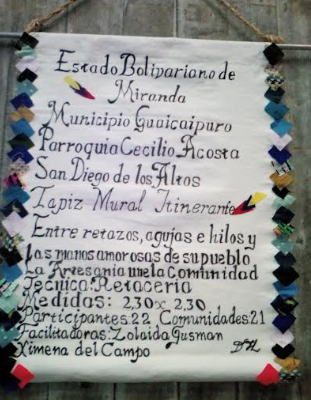 Estado Bolivariano de
Miranda
Municipio Guaicaipuro
Parroquia Cecilio Acosta
San Diego de los Altos
Tapiz Mural Itinerante
Entre retazos, agujas e hilos y
las manos amorosas de su pueblo
La Artesanía une la Comunidad
Técnica: Retacería
Medidas: 2,30 x 2,30
Participantes: 22 Comunidades: 21
Facilitadoras: Zolaida Gusman
Ximena del Campo